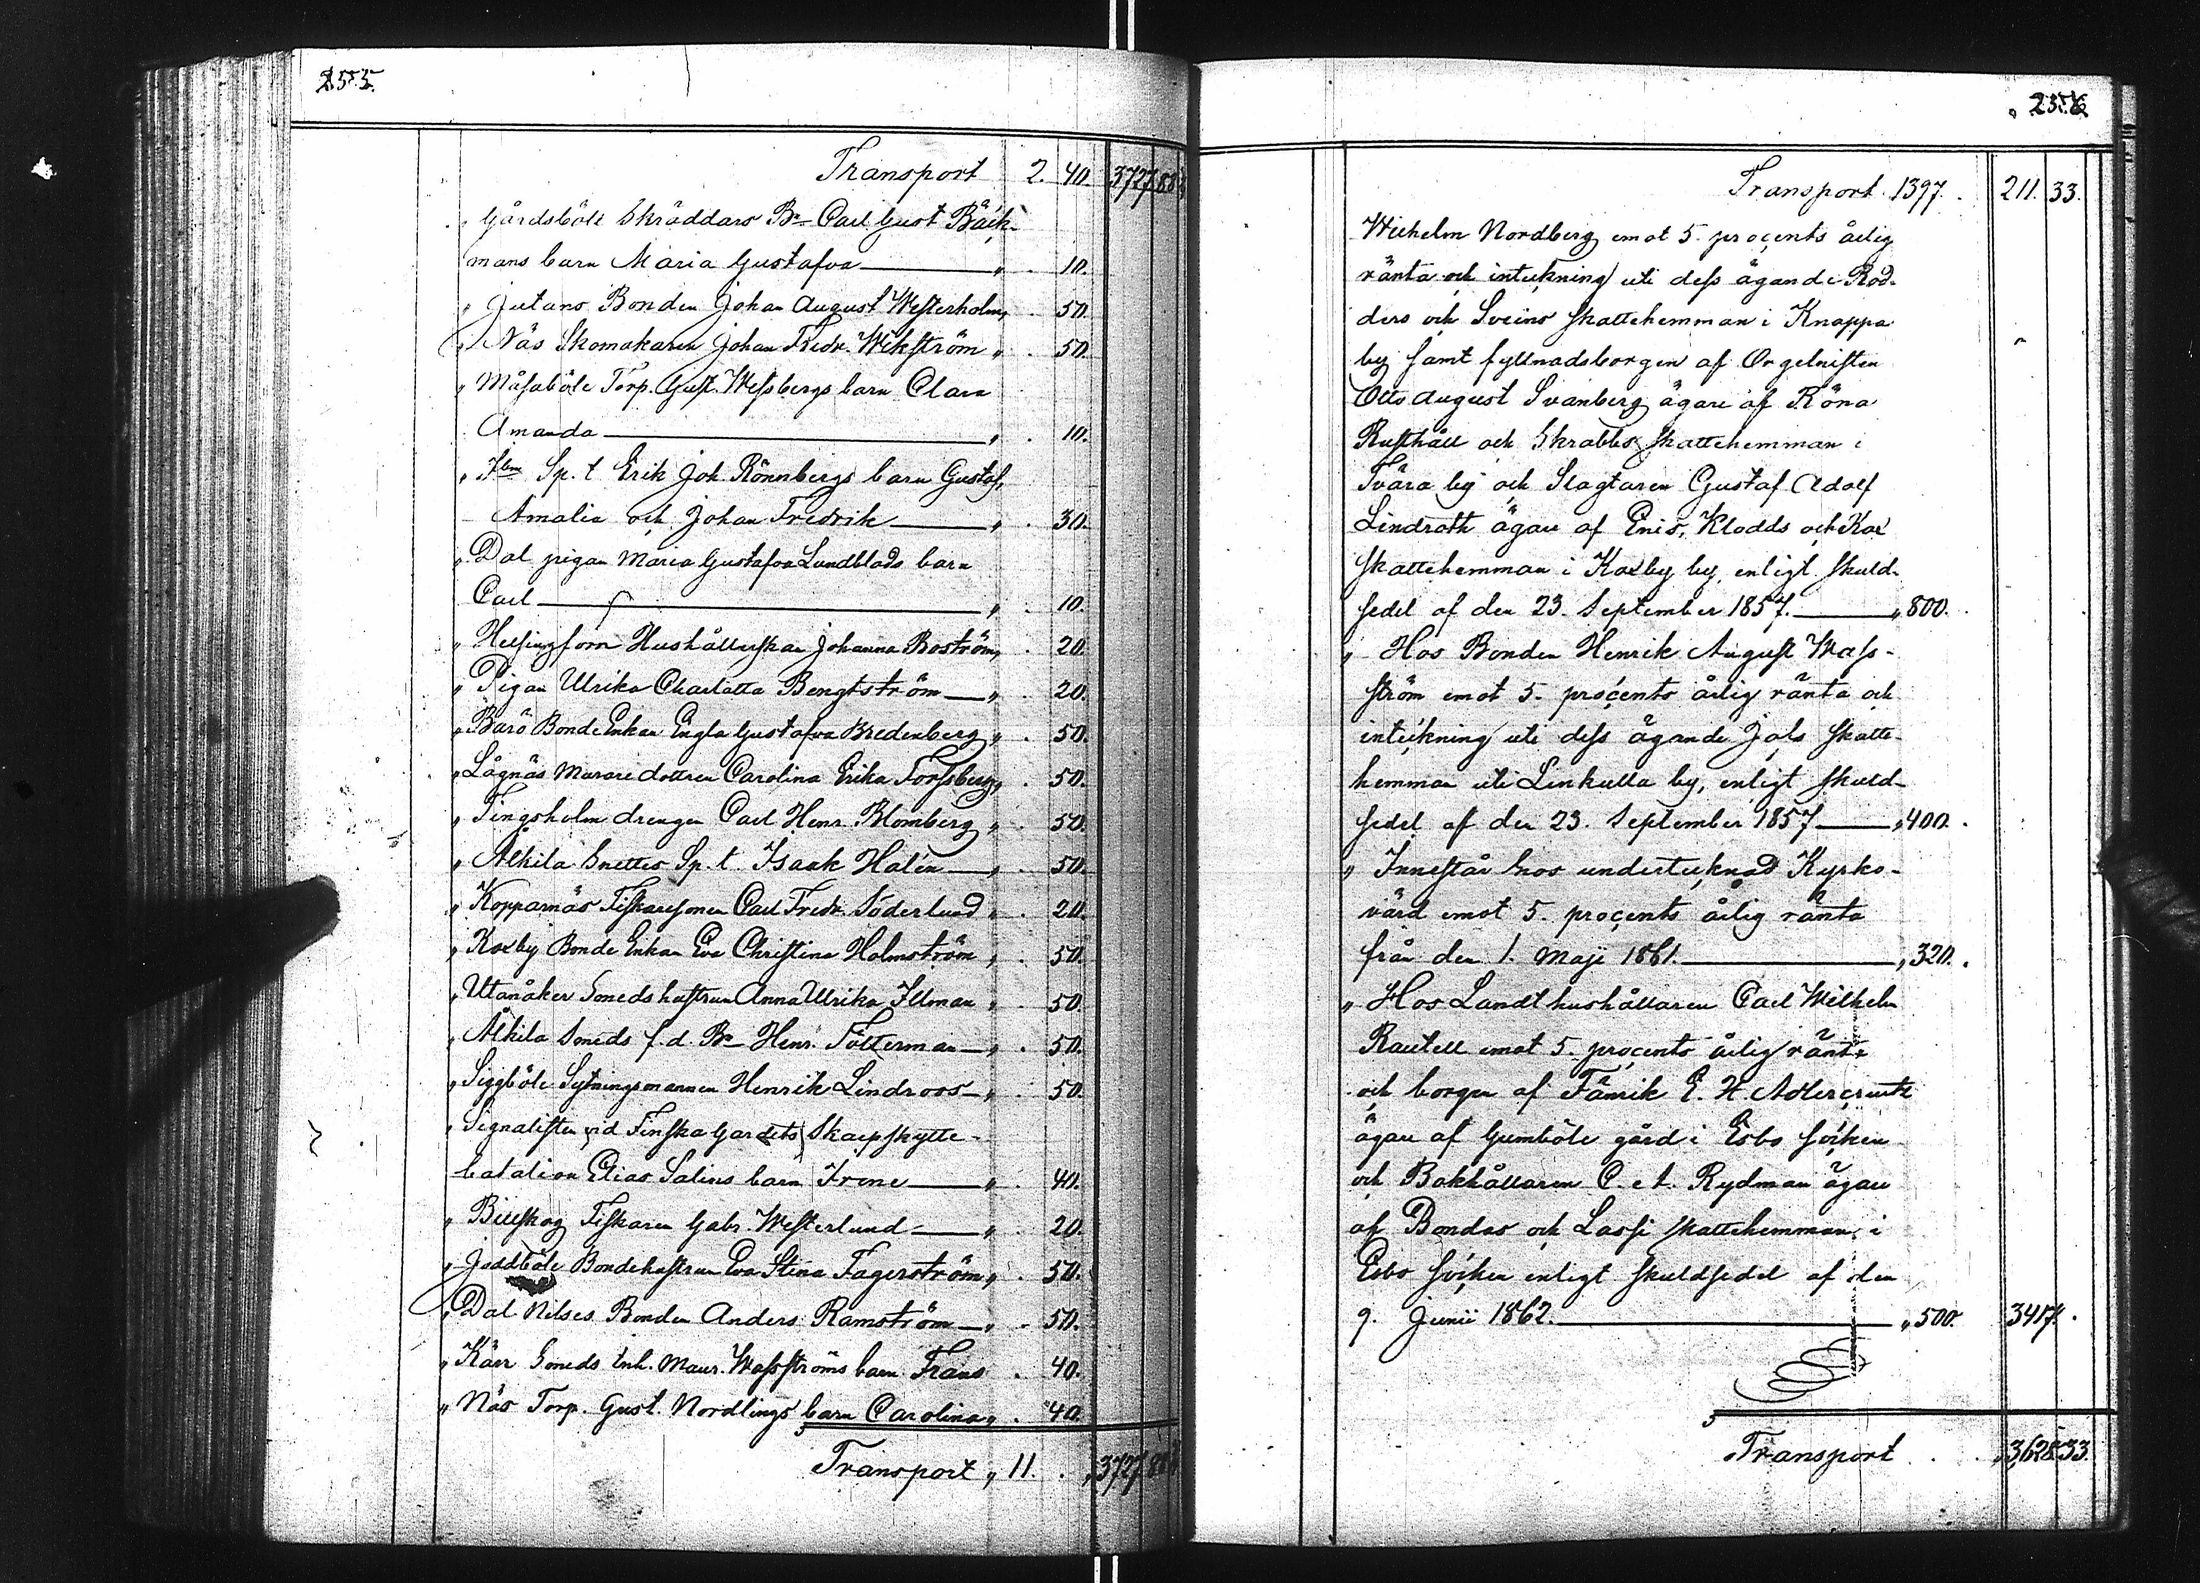 255.
Transport 2. 40. 3727 88
„ Gårdsböle Skräddars Bn Carl Gust Bäck-
mans barn Maria Gustafva — „ . 10.
„ Jutans Bonden Johan August Westerholm, . 50.
„ Näs Skomakaren Johan Fredr. Wikström „ . 50.
„ Måsaböle Torp. Gust. Wessbergs barn Clara
Amanda — „ . 10.
„ Ibm Sp. t Erik Joh. Rönnbergs barn Gustaf,
Amalia och Johan Fredrik — „ . 30.
„ Dal pigan Maria Gustafva Lundblads barn
Carl — „ . 10.
„ Helsingfors Hushållerskan Johanna Boström, . 20.
„ Pigan Ulrika Charlotta Bengtström — „ . 20.
„ Barö BondeEnkan Engla Gustafva Bredenberg „ . 50.
„ Lågnäs Muraredottren Carolina Erika Forssberg, . 50.
„ Tingsholm drengen Carl Henr. Blomberg „ . 50.
„ Alkila Snettes Sp. t. Isaak Halén — „ . 50.
„ Kopparnäs Fiskaresonen Carl Fredr. Söderlund „ . 20.
„ Koxby Bonde Enkan Eva Christina Holmström „ . 50.
„ Utanåker Smedshustrun Anna Ulrika Illman „ . 50.
„ Alkila Smeds f. d. Bn Henr. Fotterman — „ . 50.
„ Siggböle Sytningsmannen Henrik Lindroos — „ . 50.
„ Signalisten vid Finska Gardets Skarpskytte-
batalion Elias Salins barn Irene — „ . 40.
„ Billskog Fiskaren Gabr. Westerlund — „ . 20.
„ Joddböle Bondehustrun Eva Stina Fagerström „ . 50.
„ Dal Nilses Bonden Anders Ramström — „ . 50.
„ Kärr Smeds Inh. Maur. Wassströms barn Frans . 40.
„ Näs Torp. Gust. Nordlings barn Carolina „ . 40.
Transport „ 11. . „ 3727 88
256
Transport 1397. . 211. 33.
Wilhelm Nordberg emot 5. procents årlig
ränta och inteckning uti dess ägande Rod-
ders och Sveins skattehemman i Knappa
by samt fyllnadsborgen af Orgelnisten
Otto August Svanberg ägare af Röna
Rusthåll och Skrabbs skattehemman i
Tvära by och Slagtaren Gustaf Adolf
Lindroth ägare af Enis, Klodds och Kox
skattehemman i Koxby by, enligt skuld-
sedel af den 23. September 1857. — „ 800. .
„ Hos Bonden Henrik August Wass-
ström emot 5. procents årlig ränta och
inteckning uti dess ägande Jols skatte-
hemman uti Linkulla by, enligt skuld-
sedel af den 23. September 1857 — „ 400. .
„ Innestår hos undertecknad Kyrko-
värd emot 5. procents årlig ränta
från den 1. Maji 1861. — „ 320. .
„ Hos Landthushållaren Carl Wilhelm
Rautell emot 5. procents årlig ränta
och borgen af Fänrik E. H. Adlercreutz
ägare af Gumböle gård i Esbo socken
och Bokhållaren C. A. Rydman ägare
af Bondas och Lassi skattehemman, i
Esbo socken enligt skuldsedel af den
9. Junii 1862. — „ 500. 3417. .
Transport . . „ 3,628. 33.